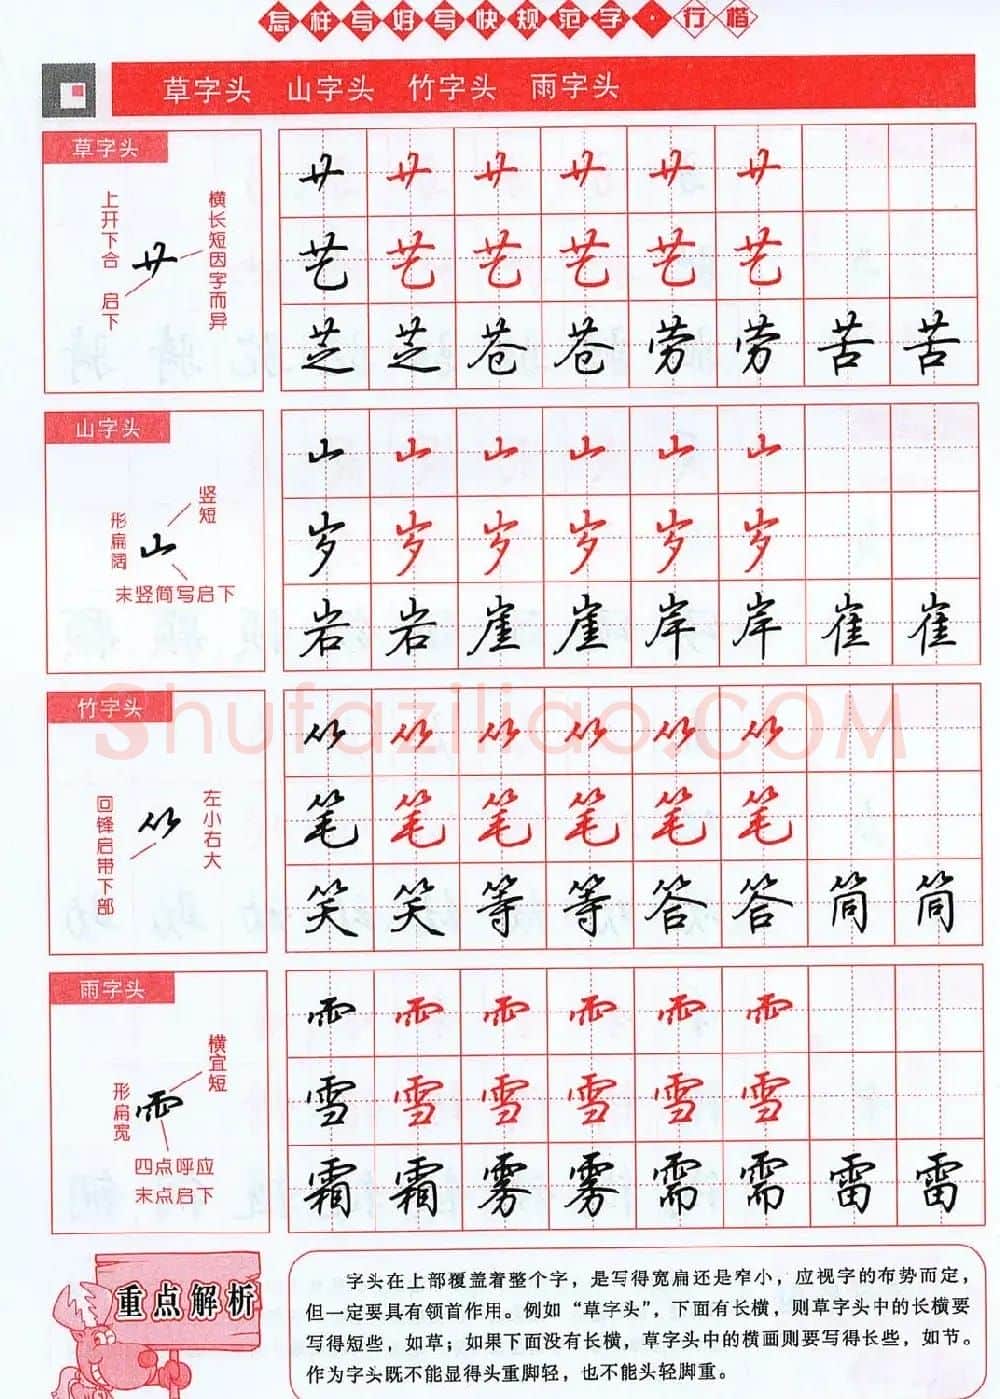 怎样写好写快规范字·行楷
草字头 山字头 竹字头 雨字头
草字头
上开下合 启下
横长短因字而异
艹
艹 艹 艹 艹 艹 艹
艺 艺 艺 艺 艺 艺
芝 芝 苍 苍 劳 劳 苦 苦
山字头
竖短
形扁阔
山
末竖简写启下
山 山 山 山 山 山
岁 岁 岁 岁 岁 岁
岩 岩 崖 崖 岸 岸 崔 崔
Shufaziliao.COM
竹字头
左小右大
回锋启带下部
⺮
⺮ ⺮ ⺮ ⺮ ⺮ ⺮
笔 笔 笔 笔 笔 笔
笑 笑 等 等 答 答 筒 筒
雨字头
横宜短
形扁宽
⻗
四点呼应
末点启下
⻗ ⻗ ⻗ ⻗ ⻗ ⻗
雪 雪 雪 雪 雪 雪
霜 霜 雾 雾 需 需 雷 雷
重点解析
字头在上部覆盖着整个字，是写得宽扁还是窄小，应视字的布势而定，
但一定要具有领首作用。例如“草字头”，下面有长横，则草字头中的长横要
写得短些，如草；如果下面没有长横，草字头中的横画则要写得长些，如节。
作为字头既不能显得头重脚轻，也不能头轻脚重。